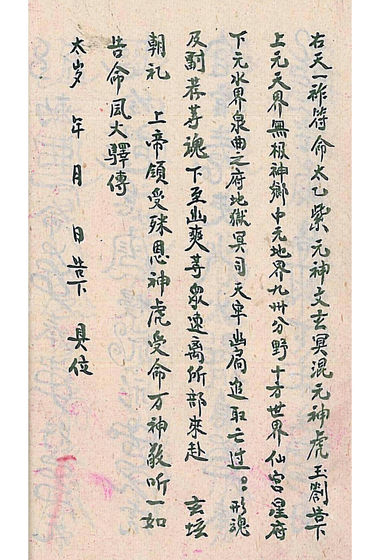 右天一祚符命太乙紫元神文玄冥混元神虎玉劄告下
上元天界無极神鄉中元地界九州分野十方世界仙宫星府
下元水界泉曲之府地獄冥司天牢幽局追取亡过〻形魂
及對荐等魂下至幽爽等眾速离所部來赴 玄坛
朝礼 上帝領受殊恩神虎受命万神敬听一如
告命風火驛傳
太岁 年 月 日告下 具位